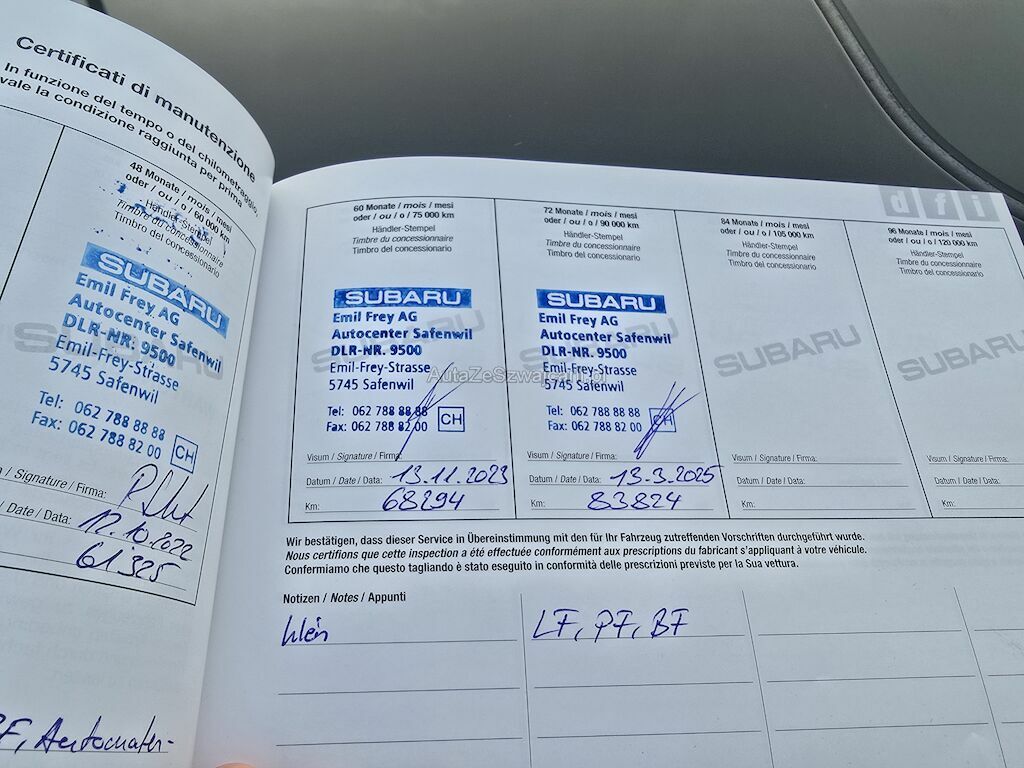 Certificati di manutenzione
In funzione del tempo o del chilometraggio,
vale la condizione raggiunta per prima
48 Monate / mois / mesi
oder / ou / o / 60 000 km
Händler-Stempel
Timbre du concessionnaire
Timbro del concessionario
SUBARU
Emil Frey AG
Autocenter Safenwil
DLR-NR. 9500
Emil-Frey-Strasse
5745 Safenwil
Tel: 062 788 88 88
Fax: 062 788 82 00
CH
/ Signature / Firma:
/ Date / Data: 12.10.2022
61'325
F, Automaten-
60 Monate / mois / mesi
oder / ou / o / 75 000 km
Händler-Stempel
Timbre du concessionnaire
Timbro del concessionario
SUBARU
Emil Frey AG
Autocenter Safenwil
DLR-NR. 9500
Emil-Frey-Strasse
5745 Safenwil
Tel: 062 788 88 88
Fax: 062 788 82 00
CH
Visum / Signature / Firma:
Datum / Date / Data: 13.11.2023
Km: 68294
72 Monate / mois / mesi
oder / ou / o / 90 000 km
Händler-Stempel
Timbre du concessionnaire
Timbro del concessionario
SUBARU
Emil Frey AG
Autocenter Safenwil
DLR-NR. 9500
Emil-Frey-Strasse
5745 Safenwil
Tel: 062 788 88 88
Fax: 062 788 82 00
CH
Visum / Signature / Firma:
Datum / Date / Data: 13.3.2025
Km: 83824
84 Monate / mois / mesi
oder / ou / o / 105 000 km
Händler-Stempel
Timbre du concessionnaire
Timbro del concessionario
SUBARU
Visum / Signature / Firma:
Datum / Date / Data:
Km:
96 Monate / mois / mesi
oder / ou / o / 120 000 km
Händler-Stempel
Timbre du concessionnaire
Timbro del concessionario
SUBARU
Visum / Signature / Firma:
Datum / Date / Data:
Km:
d f i
AutaZeSzwajcarii.pl
Wir bestätigen, dass dieser Service in Übereinstimmung mit den für Ihr Fahrzeug zutreffenden Vorschriften durchgeführt wurde.
Nous certifions que cette inspection a été effectuée conformément aux prescriptions du fabricant s'appliquant à votre véhicule.
Confermiamo che questo tagliando è stato eseguito in conformità delle prescrizioni previste per la Sua vettura.
Notizen / Notes / Appunti
klein
LF, PF, BF